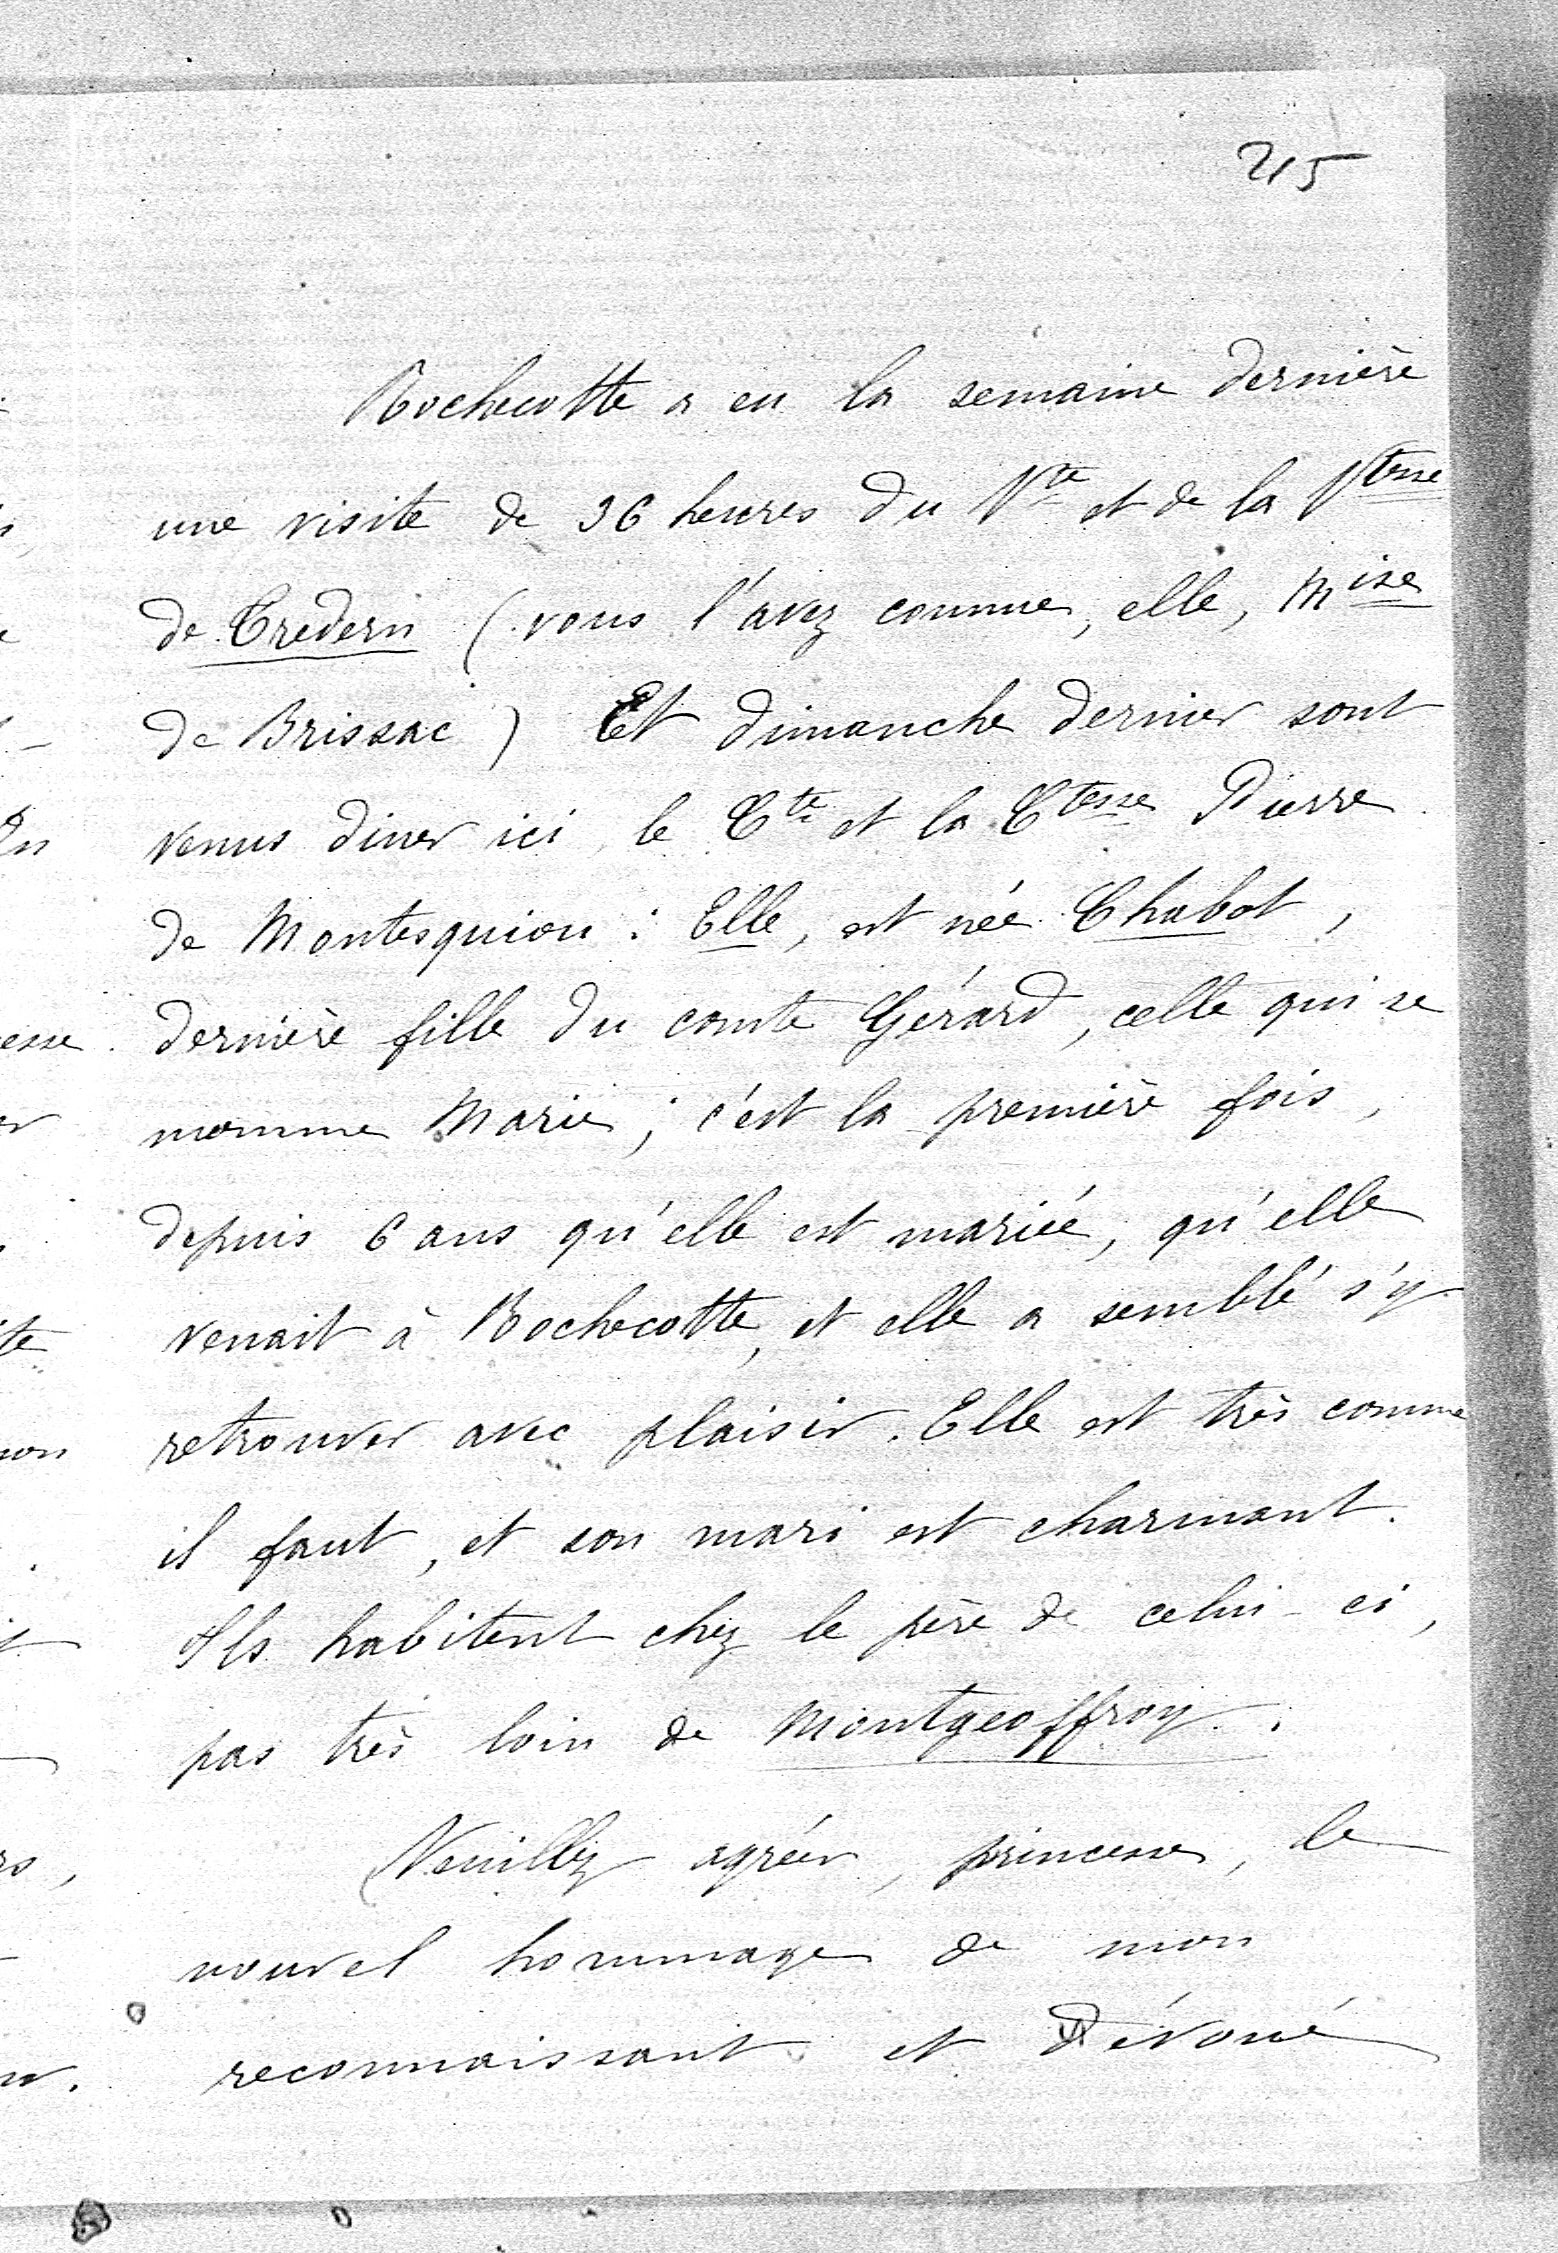 215
Rochecotte a eu la semaine dernière
une visite de 36 heures du Vte et de la Vtesse
de Tredern (vous l'avez connue, elle, Mise
de Brissac) Et dimanche dernier sont
venus diner ici le Cte et la Ctesse Pierre
de Montesquiou : Elle, est née Chabot,
dernière fille du comte Gérard, celle qui se
nomme Marie ; c'est la première fois,
depuis 6 ans qu'elle est mariée, qu'elle
venait à Rochecotte, et elle a semblé s'y
retrouver avec plaisir. Elle est très comme
il faut, et son mari est charmant.
Ils habitent chez le père de celui-ci,
pas très loin de Montgeoffroy.
Veuillez agréer, princesse, le
nouvel hommage de mon
reconnaissant et dévoué